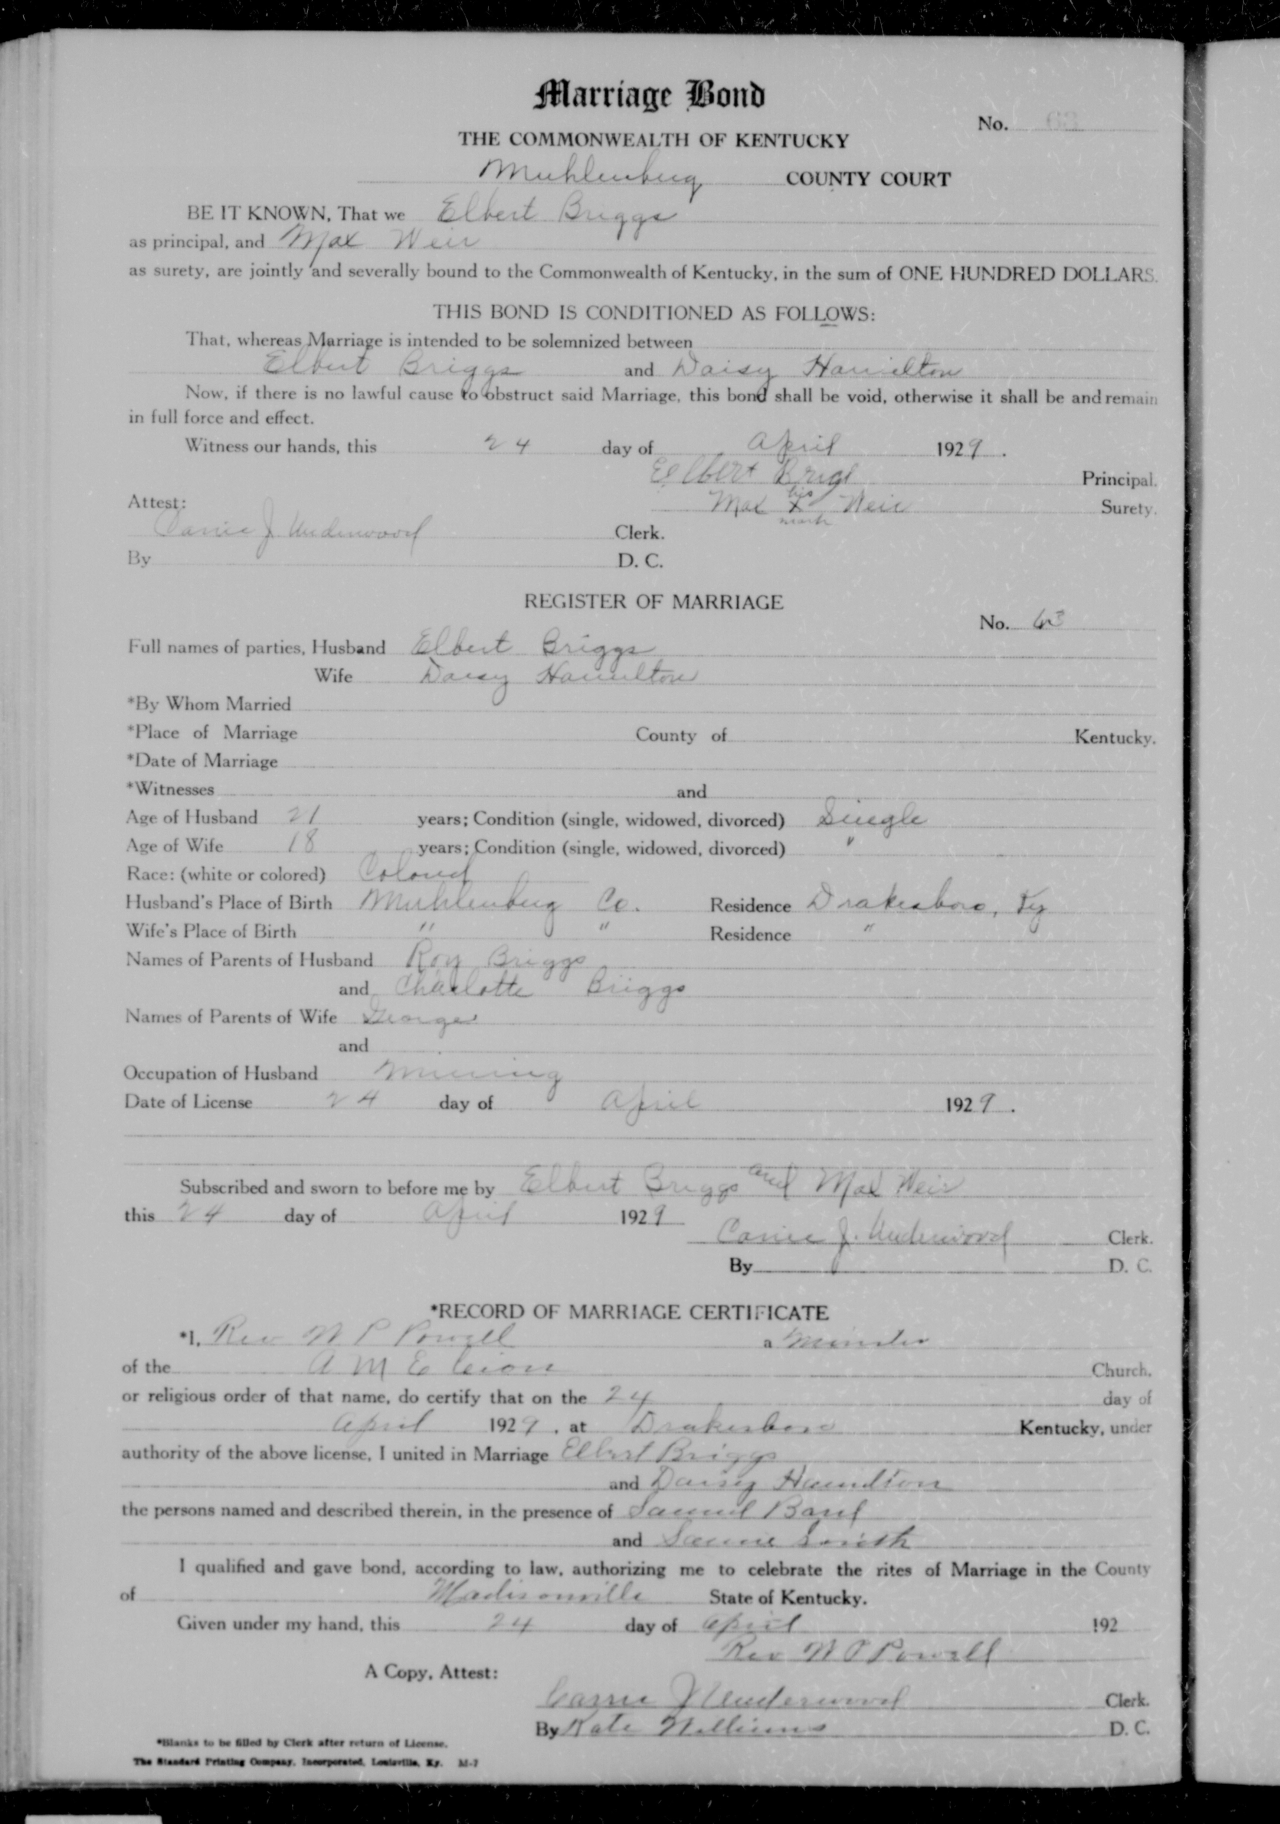 Marriage Bond
No. 63
THE COMMONWEALTH OF KENTUCKY
Muhlenberg COUNTY COURT
BE IT KNOWN, That we Elbert Briggs
as principal, and Max Weir
as surety, are jointly and severally bound to the Commonwealth of Kentucky, in the sum of ONE HUNDRED DOLLARS.
THIS BOND IS CONDITIONED AS FOLLOWS:
That, whereas Marriage is intended to be solemnized between
Elbert Briggs and Daisy Hamilton
Now, if there is no lawful cause to obstruct said Marriage, this bond shall be void, otherwise it shall be and remain
in full force and effect.
Witness our hands, this 24 day of April 1929.
Elbert Principal.
Max his x mark Weir Surety.
Attest:
Carrie J. Underwood Clerk.
By D. C.
REGISTER OF MARRIAGE
No. 63
Full names of parties, Husband Elbert Briggs
Wife Daisy Hamilton
*By Whom Married
*Place of Marriage County of Kentucky.
*Date of Marriage
*Witnesses and
Age of Husband 21 years; Condition (single, widowed, divorced) Single
Age of Wife 18 years; Condition (single, widowed, divorced) "
Race: (white or colored) Colored
Husband's Place of Birth Muhlenberg Co. Residence Drakesboro, Ky
Wife's Place of Birth " " Residence "
Names of Parents of Husband Roy Briggs
and Charlotte Briggs
Names of Parents of Wife George
and
Occupation of Husband Mining
Date of License 24 day of April 1929.
Subscribed and sworn to before me by Elbert Briggs and Max Weir
this 24 day of April 1929
Carrie J. Underwood Clerk.
By D. C.
*RECORD OF MARRIAGE CERTIFICATE
*I, Rev W P Powell a Minister
of the A M E Zion Church,
or religious order of that name, do certify that on the 24 day of
April 1929, at Drakesboro Kentucky, under
authority of the above license, I united in Marriage Elbert Briggs
and Daisy Hamilton
the persons named and described therein, in the presence of Samuel
and Smith
I qualified and gave bond, according to law, authorizing me to celebrate the rites of Marriage in the County
of Madisonville State of Kentucky.
Given under my hand, this 24 day of April 192
Rev W P Powell
A Copy, Attest:
Carrie J Underwood Clerk.
By Kate Williams D. C.
*Blanks to be filled by Clerk after return of License.
The Standard Printing Company, Incorporated, Louisville, Ky. M-7